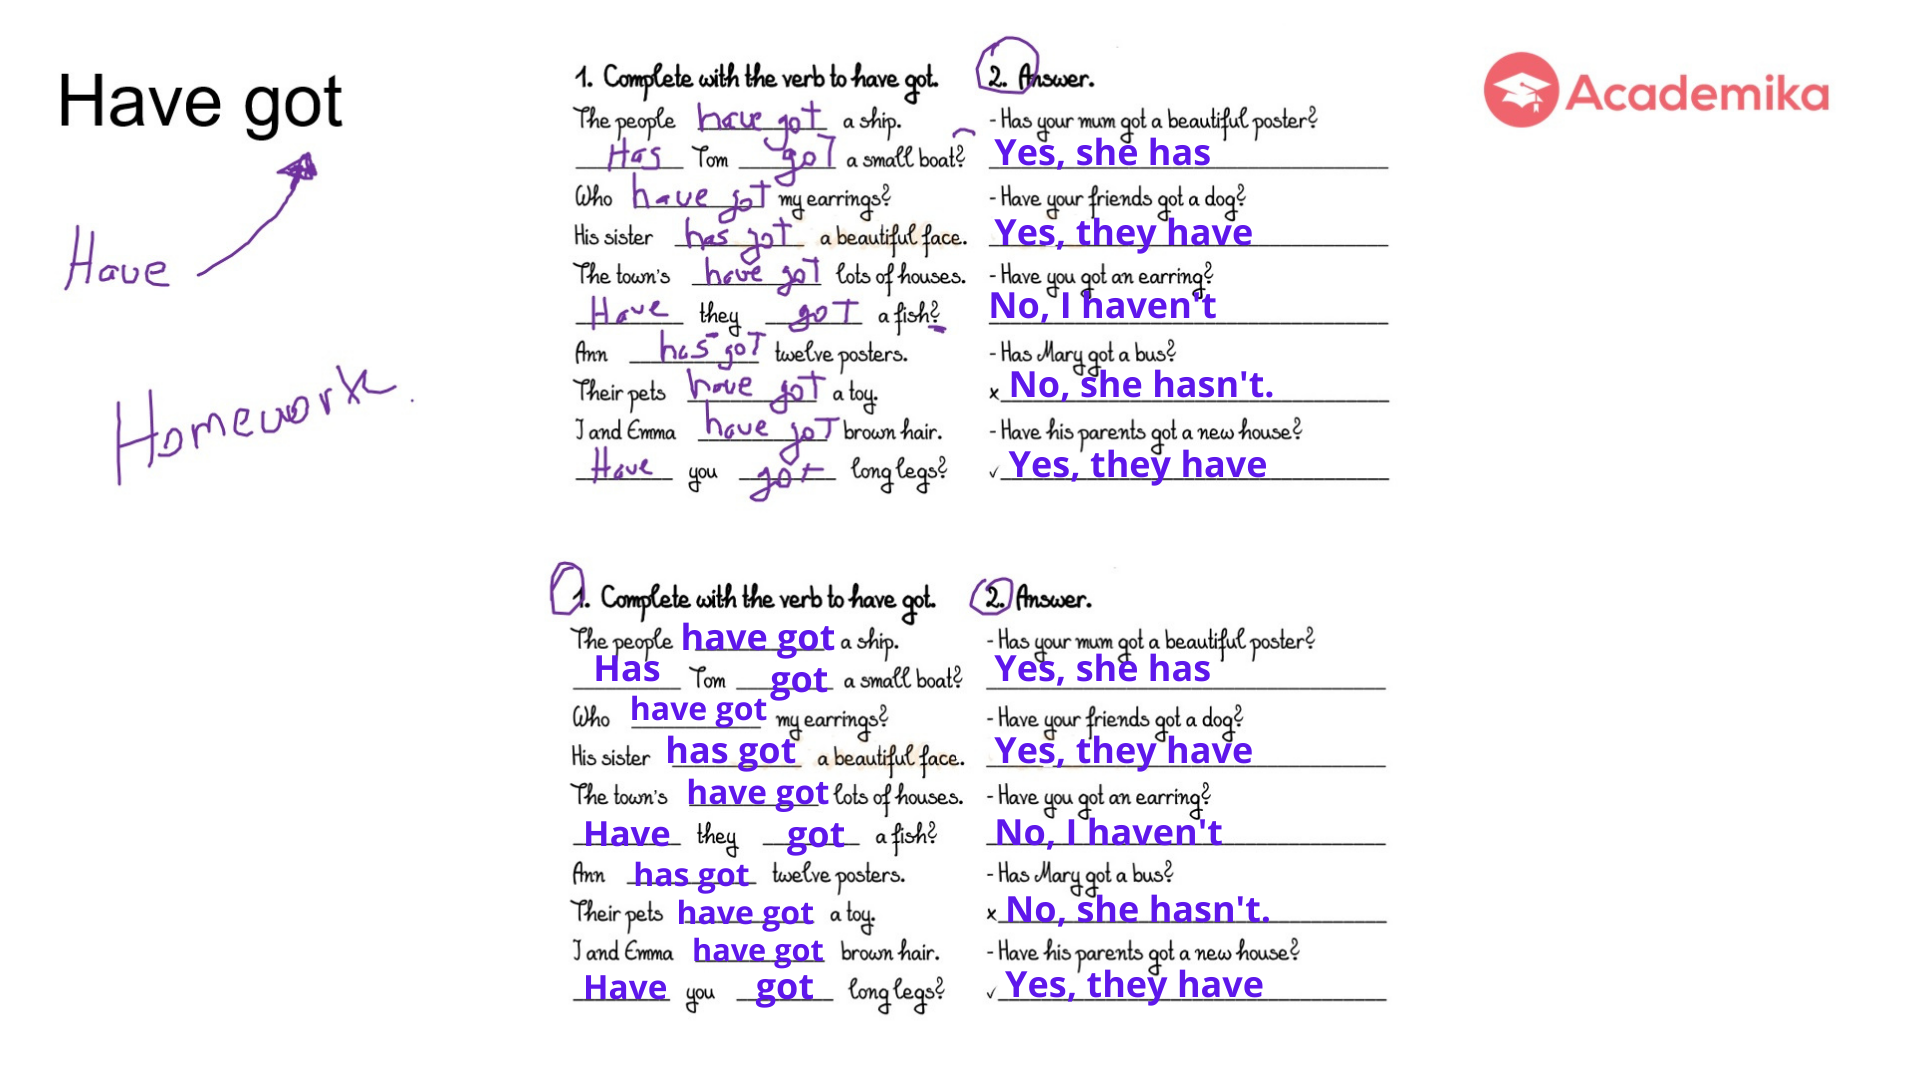 Have got
Have
Homework.
Academika
1. Complete with the verb to have got.
The people have got a ship.
Has Tom got a small boat?
Who have got my earrings?
His sister has got a beautiful face.
The town's have got lots of houses.
Have they got a fish?
Ann has got twelve posters.
Their pets have got a toy.
I and Emma have got brown hair.
Have you got long legs?
2. Answer.
- Has your mum got a beautiful poster?
Yes, she has
- Have your friends got a dog?
Yes, they have
- Have you got an earring?
No, I haven't
- Has Mary got a bus?
x No, she hasn't.
- Have his parents got a new house?
✓ Yes, they have
1. Complete with the verb to have got.
The people have got a ship.
Has Tom got a small boat?
Who have got my earrings?
His sister has got a beautiful face.
The town's have got lots of houses.
Have they got a fish?
Ann has got twelve posters.
Their pets have got a toy.
I and Emma have got brown hair.
Have you got long legs?
2. Answer.
- Has your mum got a beautiful poster?
Yes, she has
- Have your friends got a dog?
Yes, they have
- Have you got an earring?
No, I haven't
- Has Mary got a bus?
x No, she hasn't.
- Have his parents got a new house?
✓ Yes, they have